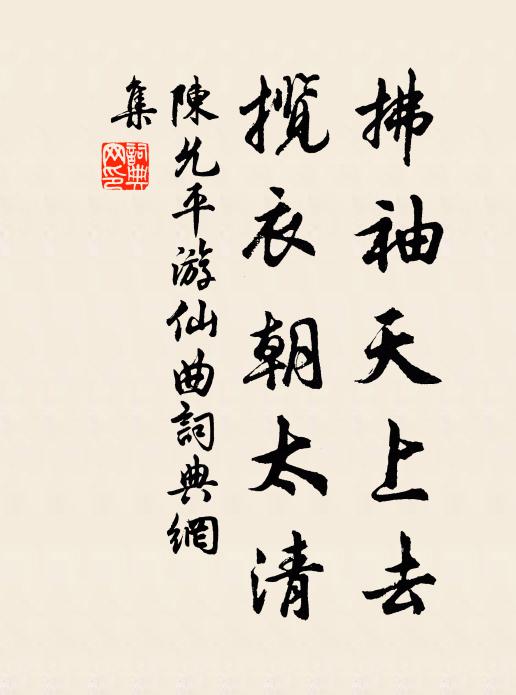 拂袖天上去
揽衣朝太清
陳允平游仙曲詞典網
集
詞典
网印